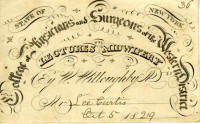 36
STATE OF NEW YORK
College of Physicians and Surgeons of the Western District
LECTURES ON MIDWIFERY
By W. Willoughby M.D.
Mr. Lee Curtis
Oct 5 1829